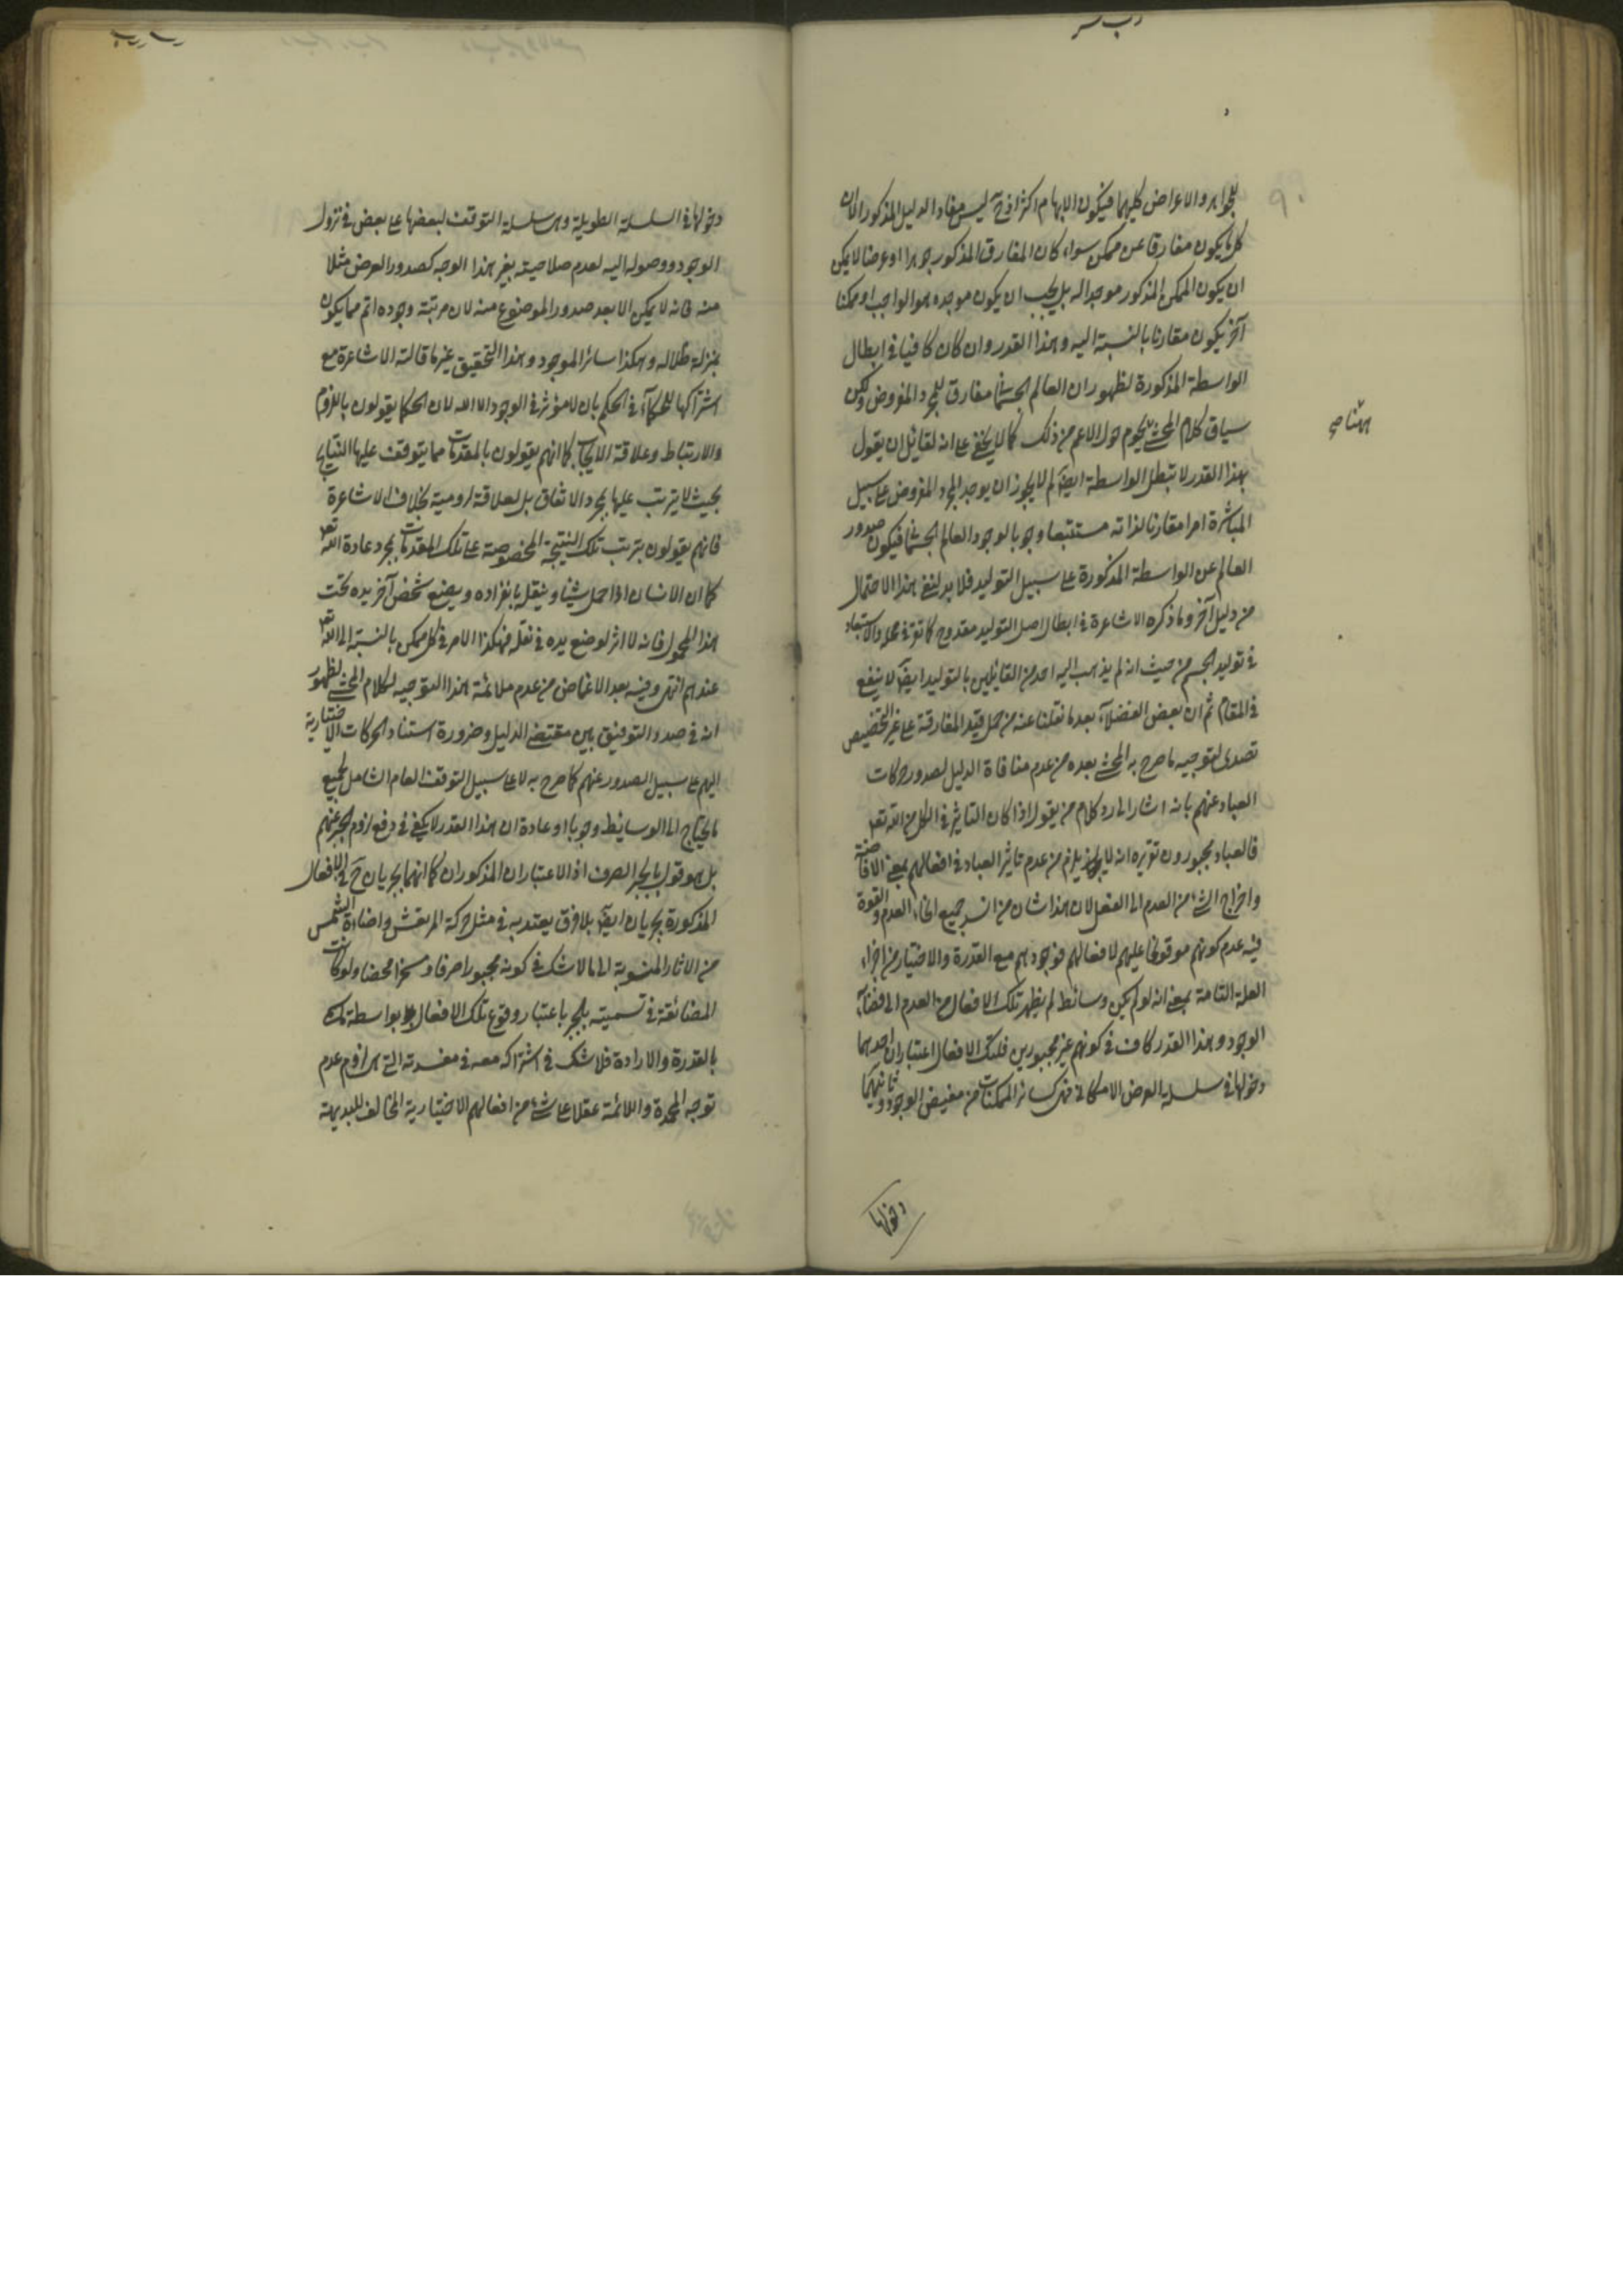 للجواهر والاعراض كليهما فيكون الابهام اكثر اذ ح ليس مفاد الدليل المذكور الا ان
كل ما يكون مفارقا عن ممكن سواء كان المفارق المذكور جوهرا او عرضا لا يمكن
ان يكون الممكن المذكور موجدا له بل يجب ان يكون موجده هو الواجب او ممكنا
آخر يكون مقارنا بالنسبة اليه وهذا القدر وان كان كافيا في ابطال
الواسطة المذكورة لظهور ان العالم الجسمانى مفارق للمجرد المفروض ولكن
سياق كلام المحشى يحوم حول الاعم من ذلك كما لا يخفى على انه لقائل ان يقول
بهذا القدر لا تبطل الواسطة ايضا لم لا يجوز ان يوجد المجرد المفروض على سبيل
المباشرة امرا مقارنا لذاته مستتبعا وجوبا لوجود العالم الجسمانى فيكون صدور
العالم عن الواسطة المذكورة على سبيل التوليد فلا بد لنفى هذا الاحتمال
من دليل آخر وما ذكره الاشاعرة في ابطال اصل التوليد مقدوح كما تقرر في محله والاستبعاد
في توليد الجسم من حيث انه لم يذهب اليه احد من القائلين بالتوليد ايضا لا ينفع
في المقام ثم ان بعض الفضلاء بعد ما نقلنا عنه من حمل قيد المفارقة على غير التخصيص
تصدى لتوجيه ما صرح به المحشى بعده من عدم منافاة الدليل لصدور حركات
العباد عنهم بانه اشار الى رد كلام من يقول اذا كان التاثير في الكل من الله تعه
فالعباد مجبورون تقريره انه لا يلزم من عدم تاثير العباد في افعالهم بمعنى الافاضة
واخراج الشئ من العدم الى الفعل لان هذا شان من ليس جميع انحاء العدم والقوة
فيه عدم كونهم موقوفا عليهم لافعالهم فوجودهم مع القدرة والاختيار من اجزاء
العلة التامة بمعنى انه لو لم يكن وسائط لم يظهر تلك الافعال من العدم الى فضاء
الوجود وهذا القدر كاف في كونهم غير مجبورين فلتلك الافعال اعتباران احدهما
دخولها في سلسلة العرض الامكانى فهى كسائر الممكنات من مفيض الوجود وثانيهما
دخولها
دخولها في السلسلة الطويلة وهى سلسلة التوقف لبعضها على بعض في نزول
الوجود ووصوله اليه لعدم صلاحيته بغير هذا الوجه كصدور العرض مثلا
منه فانه لا يمكن الا بعد صدور الموضوع منه لان مرتبة وجوده اتم مما يكون
بمنزلة ظلاله وهكذا سائر الموجود وهذا التحقيق غير ما قالته الاشاعرة مع
اشتراكها للحكماء في الحكم بان لا مؤثر في الوجود الا الله لان الحكما يقولون باللزوم
والارتباط وعلاقة الايجاب كما انهم يقولون بالمقدمات مما يتوقف عليها النتايج
بحيث لا يترتب عليها بمجرد الاتفاق بل لعلاقة لزومية بخلاف الاشاعرة
فانهم يقولون بترتب تلك النتيجة المخصوصة على تلك المقدمات بمجرد عادة الله تعه
كما ان الانسان اذا حمل شيئا وينقل بانفراده ويضع شخص آخر يده تحت
هذا المحمول فانه لا اثر لوضع يده في نقله فهكذا الامر في كل ممكن بالنسبة الى الله تعه
عندهم انتهى وفيه بعد الاغماض من عدم ملائمة هذا التوجيه لكلام المحشى لظهور
انه في صدد التوفيق بين مقتضى الدليل وضرورة استناد الحركات الاختيارية
اليهم على سبيل الصدور عنهم كما صرح به لا على سبيل التوقف العام الشامل لجميع
ما يحتاج الى الوسائط وجوبا او عادة ان هذا القدر لا يكفى في دفع لزوم الجبر عنهم
بل هو قول بالجبر الصرف اذ الاعتباران المذكوران كما انهما يجريان ح في الافعال
المذكورة يجريان ايضا بلا فرق يعتد به في مثل حركة المرتعش واضاءة الشمس
من الاثار المنسوبة الى ما لا شك في كونه مجبورا صرفا ومسخرا محضا ولو كانت
المضائقة في تسميته بالجبر باعتبار وقوع تلك الافعال بواسطة
بالقدرة والارادة فلا شك في اشتراكه معه في مفسدته التى هى لزوم عدم
توجه المحمدة واللائمة عقلا على شئ من افعالهم الاختيارية المخالف للبديهة